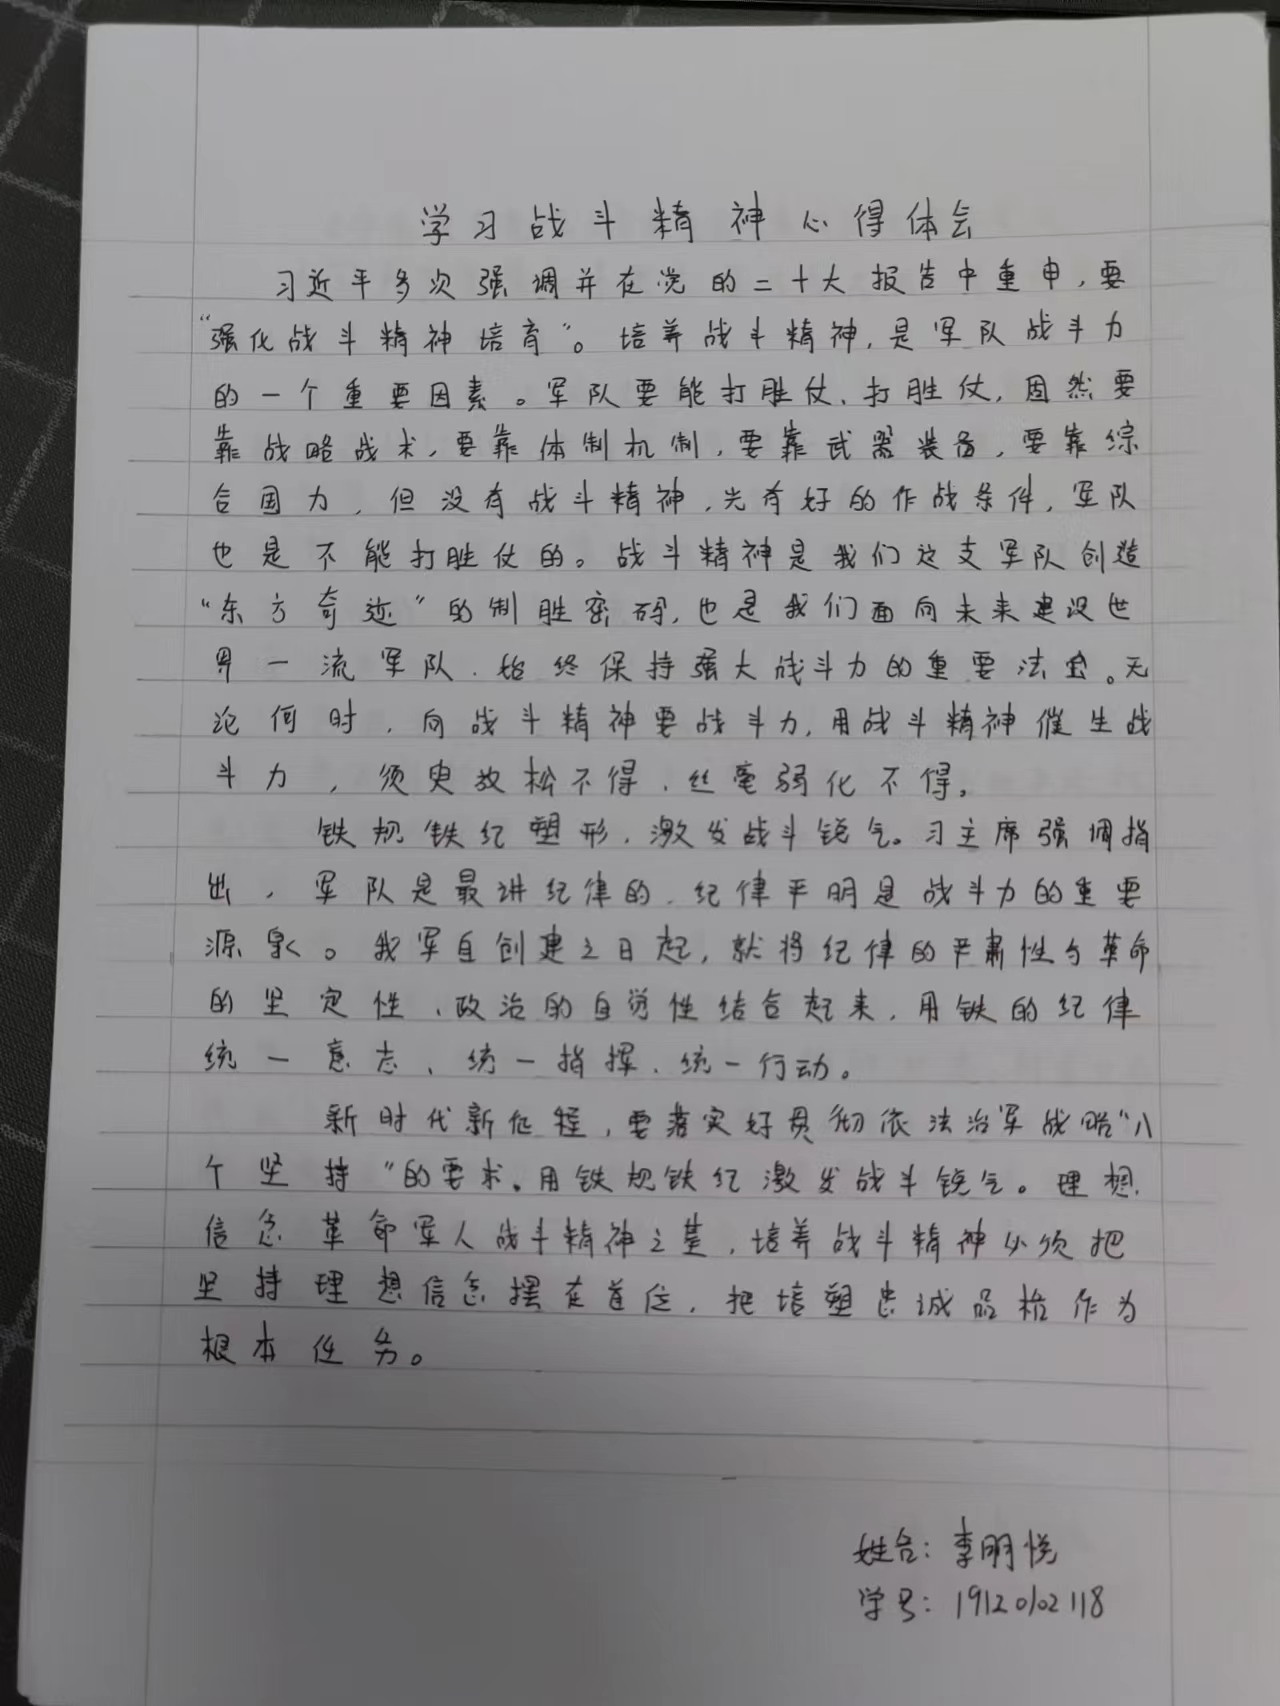 学习战斗精神心得体会
习近平多次强调并在党的二十大报告中重申，要
“强化战斗精神培育”。培养战斗精神，是军队战斗力
的一个重要因素。军队要能打胜仗、打胜仗，固然要
靠战略战术，要靠体制机制，要靠武器装备，要靠综
合国力，但没有战斗精神，光有好的作战条件，军队
也是不能打胜仗的。战斗精神是我们这支军队创造
“东方奇迹”的制胜密码，也是我们面向未来建设世
界一流军队、始终保持强大战斗力的重要法宝。无
论何时，向战斗精神要战斗力，用战斗精神催生战
斗力，须臾放松不得、丝毫弱化不得。
铁规铁纪塑形，激发战斗锐气。习主席强调指
出，军队是最讲纪律的，纪律严明是战斗力的重要
源泉。我军自创建之日起，就将纪律的严肃性与革命
的坚定性、政治的自觉性结合起来，用铁的纪律
统一意志、统一指挥、统一行动。
新时代新征程，要落实好贯彻依法治军战略“八
个坚持”的要求，用铁规铁纪激发战斗锐气。理想
信念革命军人战斗精神之基，培养战斗精神必须把
坚持理想信念摆在首位，把培塑忠诚品格作为
根本任务。
姓名：李明悦
学号：19120102118